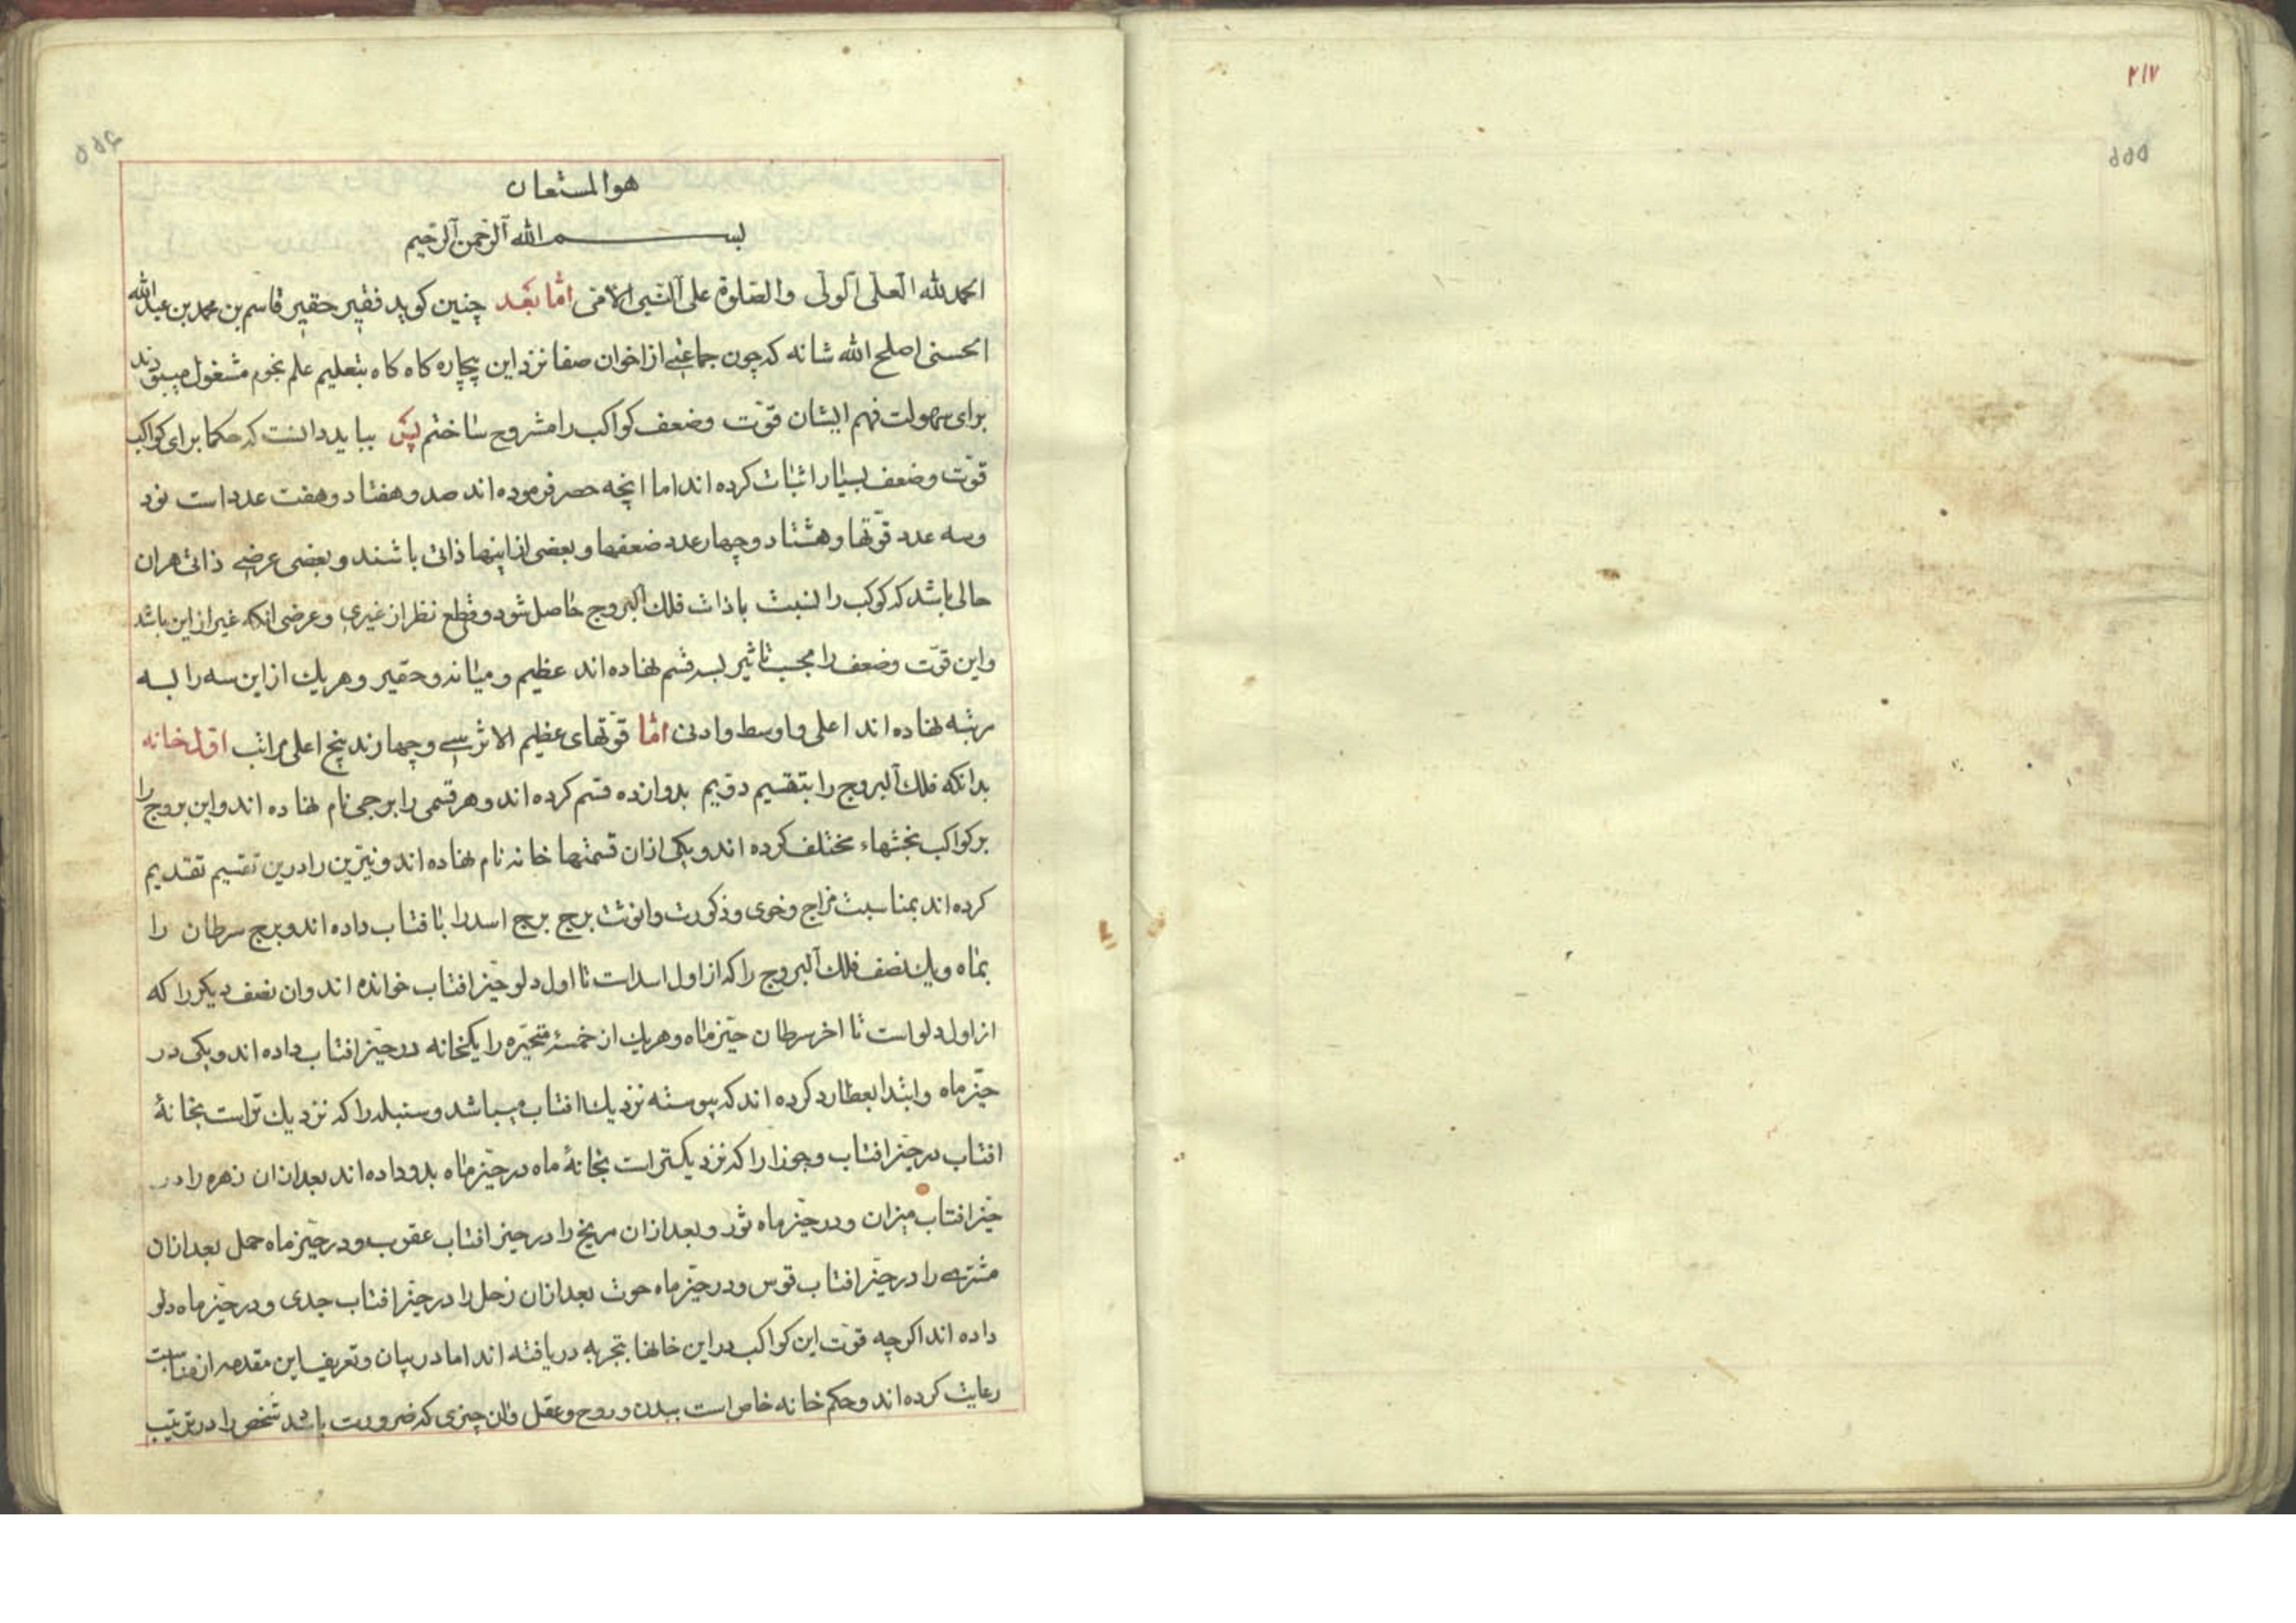 ۲۱۷
۵۵۵
۵۵۶
هوالمستعان
بسم الله الرحمن الرحیم
الحمدلله العلی الولی والصلوة علی النبی الامی اما بعد چنین کوید فقیر حقیر قاسم بن محمد بن عبدالله
الحسنی اصلح الله شانه که چون جماعتی از اخوان صفا نزد این بیچاره کاه کاه بتعلیم علم نجوم مشغول میبودند
برای سهولت فهم ایشان قوت وضعف کواکب را مشروح ساختم پس بباید دانست که حکما برای کواکب
قوت وضعف بسیار اثبات کرده اند اما انچه حصر فرموده اند صد و هفتاد و هفت عدد است نود
وسه عدد قوتها و هشتاد و چهار عدد ضعفها و بعضی از اینها ذاتی باشند و بعضی عرضی ذاتی هران
حالی باشد که کوکب را نسبت با ذات فلك البروج حاصل شود و قطع نظر از غیری و عرضی انکه غیر از این باشد
واین قوت وضعف را بحسب تاثیر بسه قسم نهاده اند عظیم و میانه و حقیر و هریك از این سه را بسه
رتبه نهاده اند اعلی و اوسط و ادنی اما قوتهای عظیم الاثر سی و چهارند پنج اعلی مراتب اول خانه
بدانکه فلك البروج را بتقسیم دویم بدوازده قسم کرده اند و هر قسمی را برجی نام نهاده اند و این بروج را
بر کواکب بخشهاء مختلف کرده اند و یکی ازان قسمتها خانه نام نهاده اند و نیرین را درین تقسیم تقدیم
کرده اند بمناسبت مزاج و خوی و ذکورت وانوثت برج برج اسد را بافتاب داده اند و برج سرطان را
بماه ویك نصف فلك البروج را که از اول اسد است تا اول دلو حیز افتاب خوانده اند وان نصف دیکر را که
از اول دلو است تا اخر سرطان حیز ماه وهریك از خمسهٔ متحیره را یکخانه در حیز افتاب داده اند و یکی در
حیز ماه وابتدا بعطارد کرده اند که پیوسته نزدیك افتاب میباشد و سنبله را که نزدیك تر است بخانهٔ
افتاب در حیز افتاب و جوزا را که نزدیکتر است بخانهٔ ماه در حیز ماه بدو داده اند بعد ازان زهره را در
حیز افتاب میزان ودر حیز ماه ثور وبعد ازان مریخ را در حیز افتاب عقرب ودر حیز ماه حمل بعد ازان
مشتری را در حیز افتاب قوس ودر حیز ماه حوت بعد ازان زحل را در حیز افتاب جدی ودر حیز ماه دلو
داده اند اکرچه قوت این کواکب در این خانها بتجربه دریافته اند اما در بیان و تعریف این مقدمه از مناسبت
رعایت کرده اند وحکم خانه خاص است ببدن و روح و عقل وان چیزی که ضرورت باشد شخص را در ترتیب